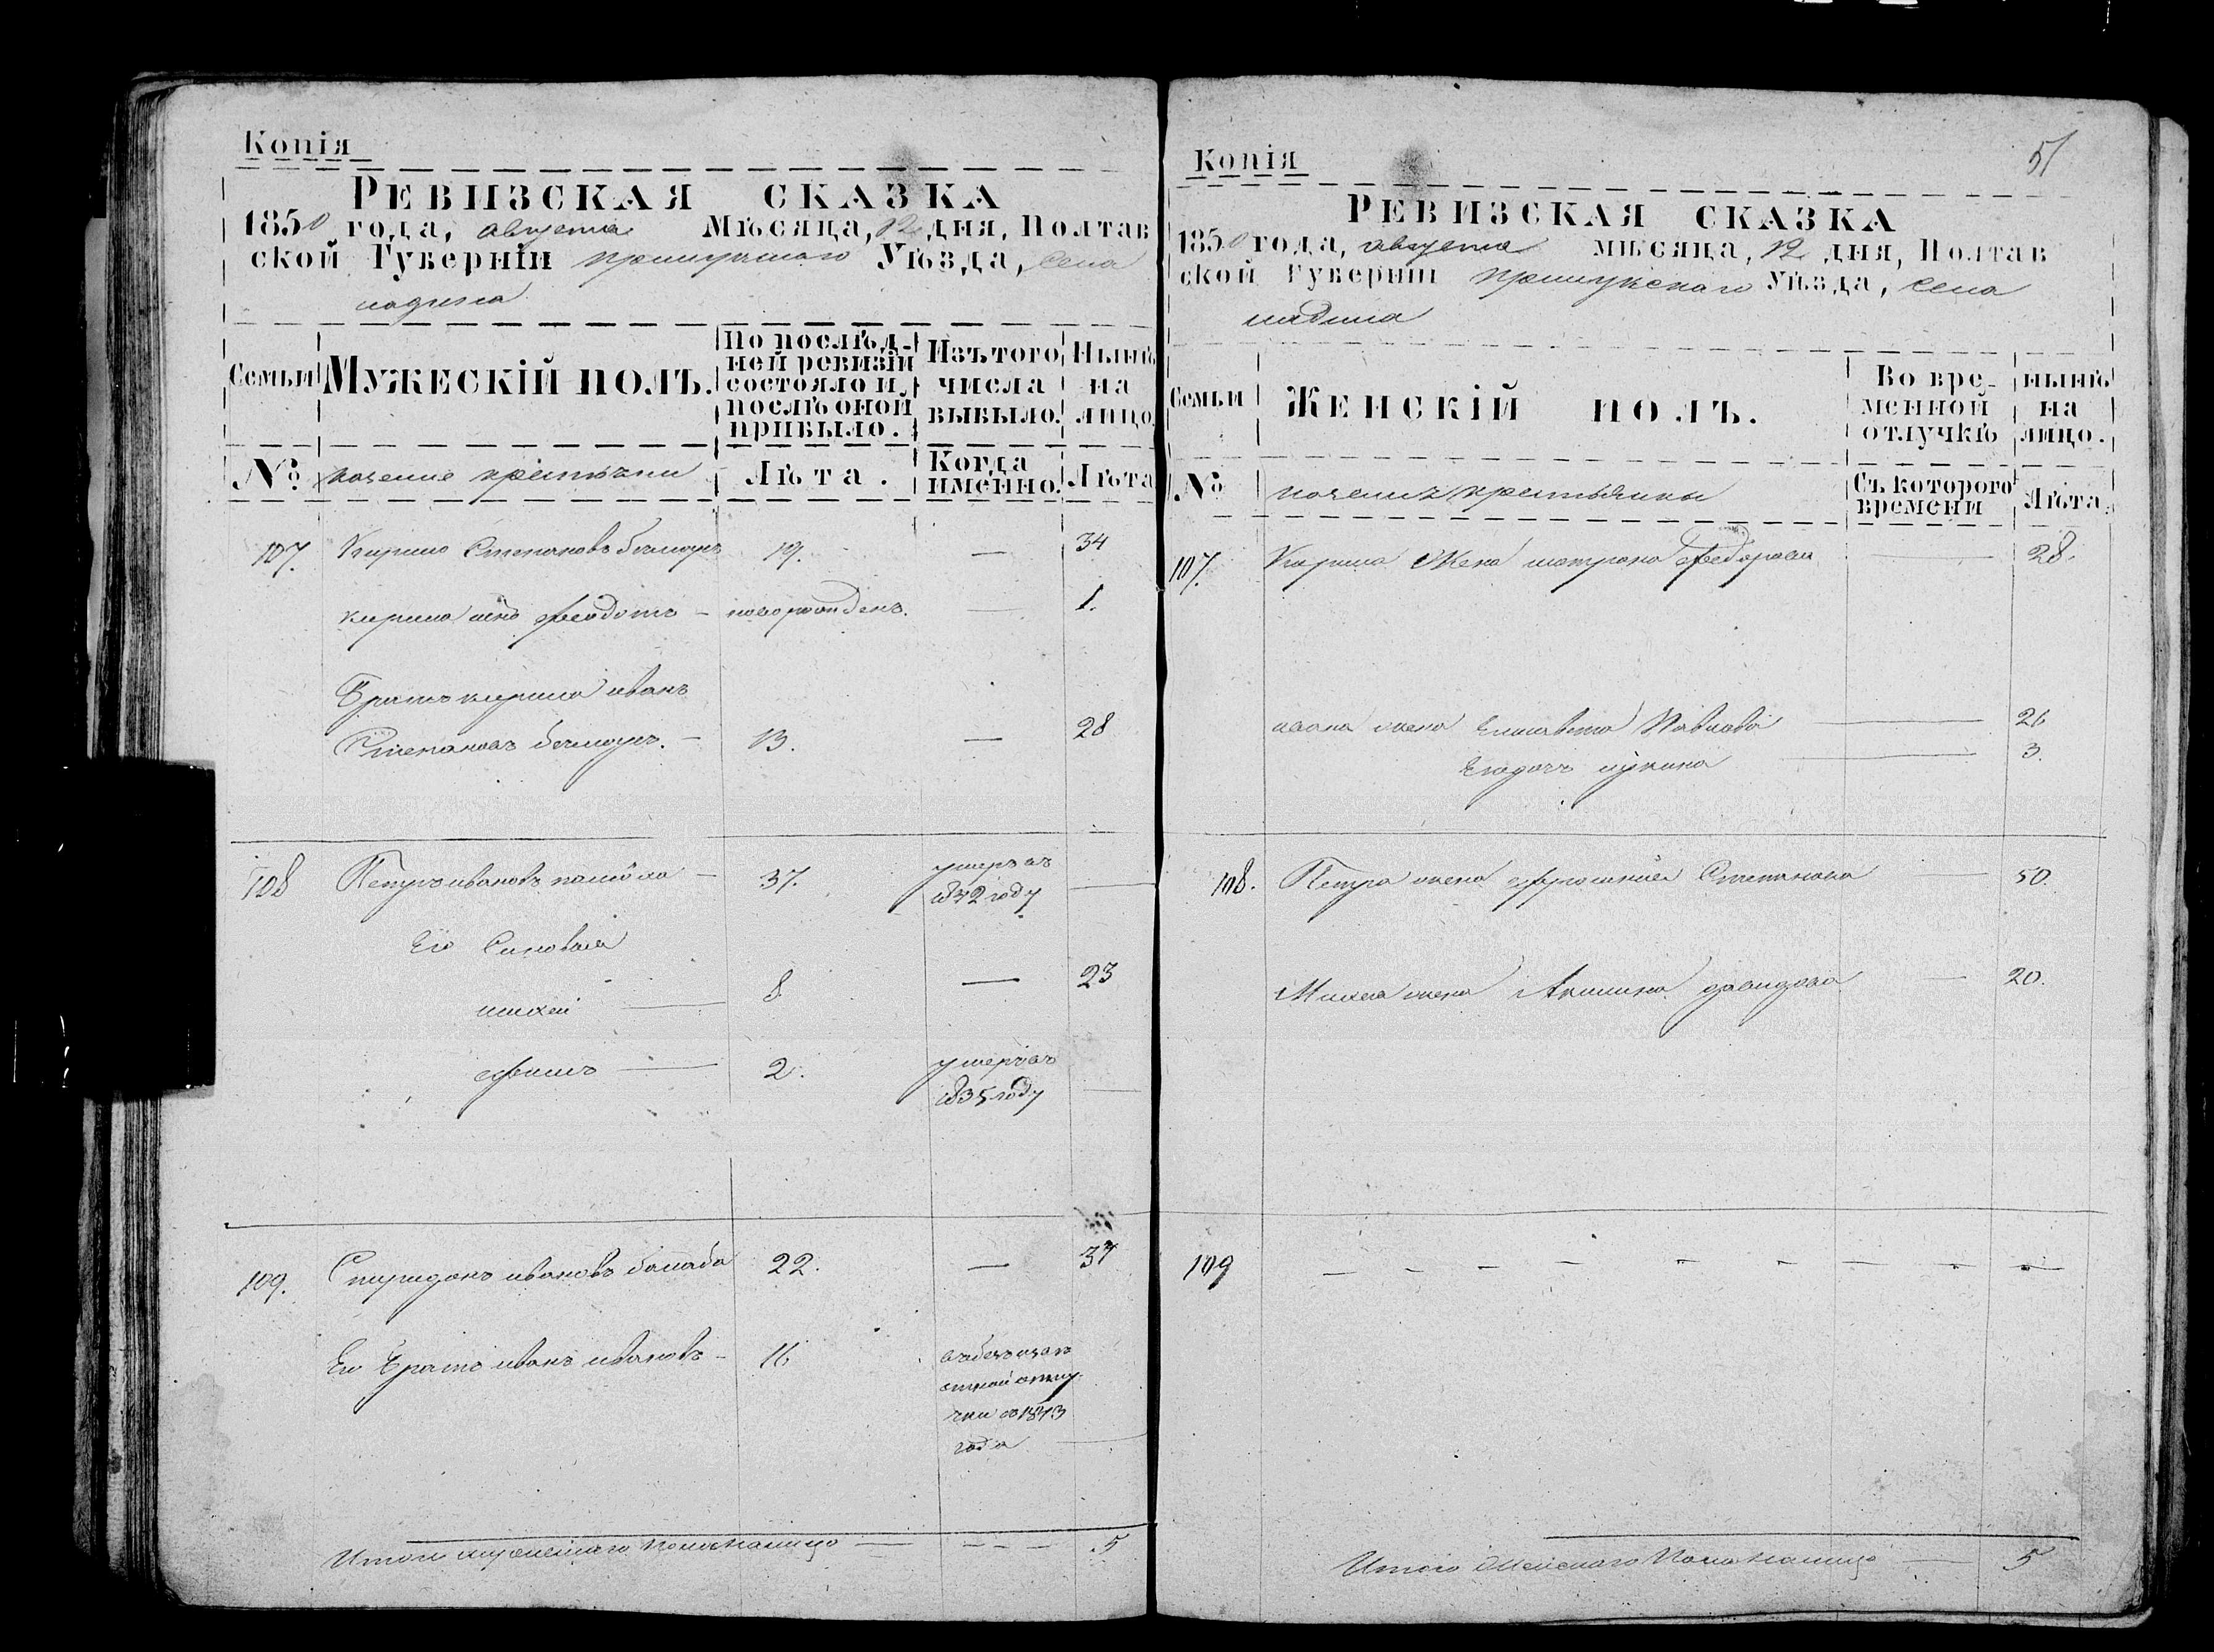 Копія
РЕВИЗСКАЯ СКАЗКА
1850 года, августа Мѣсяца, 12 дня, Полтав
ской Губерніи Прилуцкаго Уѣзда, села
ладина
Семьи
МУЖЕСКІЙ ПОЛЪ.
По послѣд-
ней ревизіи
состояло и
послѣ оной
прибыло.
Изъ того
числа
выбыло.
Нынѣ
на
лицо.
№
крестьяни
Лѣта.
Когда
именно.
Лѣта
107. Кирило Степановъ 19. — 34
кирила сынъ федотъ — новорожденъ. — 1.
Братъ кирила иванъ
Степановъ — 13. — 28
108 Петръ ивановъ — 37. умеръ въ
1842 году —
Его Сыновья
михей — 8 — 23
ефимъ — 2. умеръ въ
1835 году —
109. Спиридонъ ивановъ балаба 22. — 37
Его Братъ иванъ ивановъ — 16
въ безъизвѣ
стной отлу-
чки съ 1843
года —
Итого мужескаго Пола налицо — 5
Копія
51
РЕВИЗСКАЯ СКАЗКА
1850 года, августа мѣсяца, 12 дня, Полтав
ской Губерніи Прилуцкаго Уѣзда, села
ладина
Семьи
ЖЕНСКІЙ ПОЛЪ.
Во вре-
менной
отлучкѣ
нынѣ
на
лицо.
№
Съ котораго
времени
Лѣта.
107. Кирила Жена матрона федорова — 28.
ивана жена Елисавета Павлова — 26
Его дочь — 3.
108. Петра жена ефросинія Степанова — 50.
Михея жена Акилина давидова — 20.
109 — — — — — — — — —
Итого Женскаго Пола налицо — 5